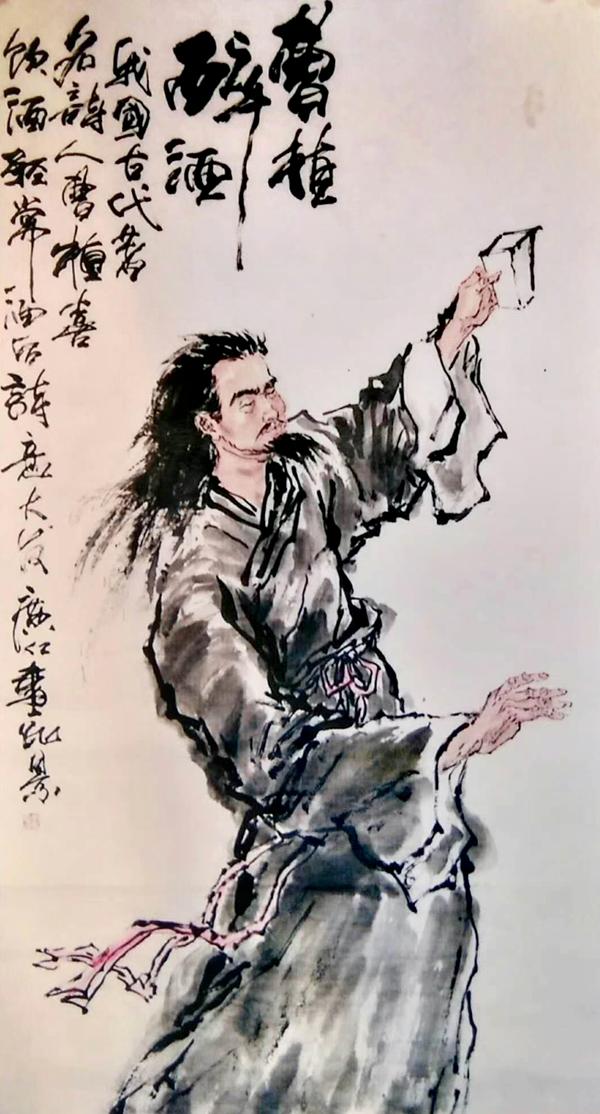 曹植
醉酒
我國古代著
名詩人曹植喜
飲酒經常酒后詩意大发廣仁畫